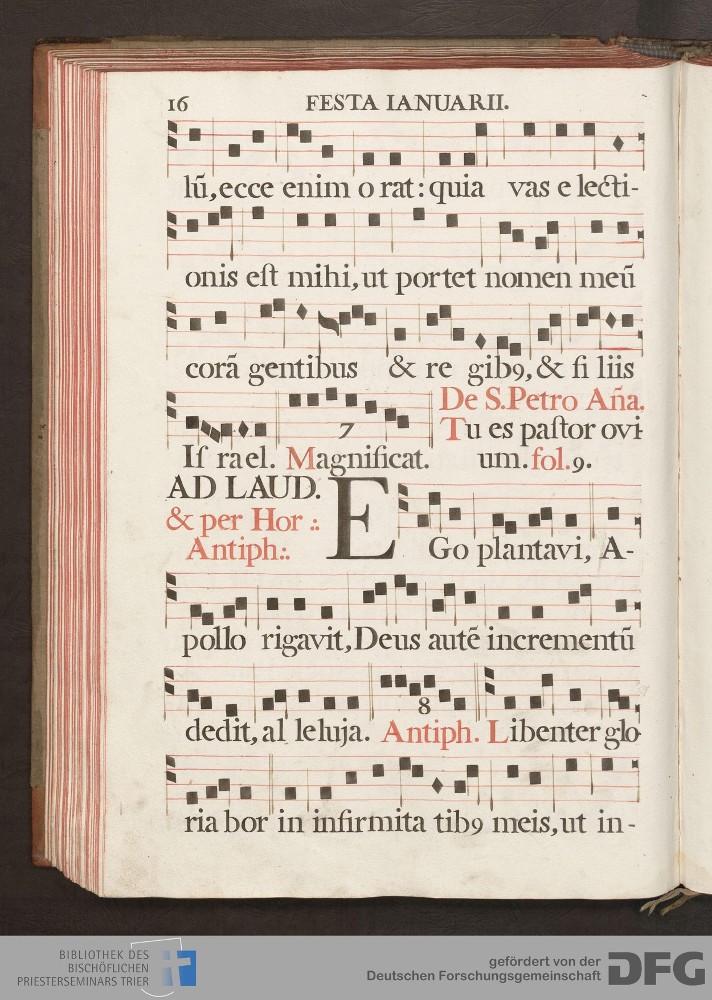 16 FESTA IANUARII.
lū, ecce enim o rat: quia vas e lecti-
onis est mihi, ut portet nomen meū
corā gentibus & re gibꝯ, & fi liis
De S. Petro Aña.
7 Tu es pastor ovi
Is rael. Magnificat. um. fol. 9.
AD LAUD.
& per Hor .:
Antiph.:. EGo plantavi, A-
pollo rigavit, Deus autē incrementū
8
dedit, al leluja. Antiph. Libenter glo
ria bor in infirmita tibꝯ meis, ut in-
BIBLIOTHEK DES
BISCHÖFLICHEN
PRIESTERSEMINARS TRIER
gefördert von der
Deutschen Forschungsgemeinschaft DFG